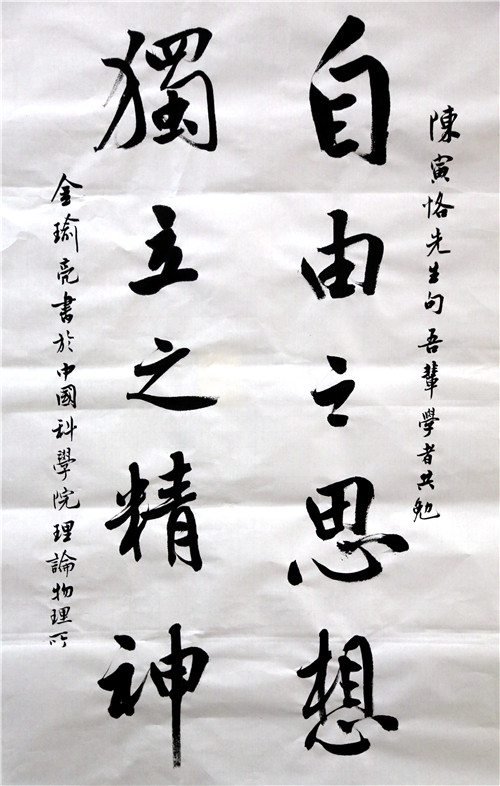 陳寅恪先生句 吾輩學者共勉
自由之思想
獨立之精神
金瑜亮書於中國科學院理論物理所